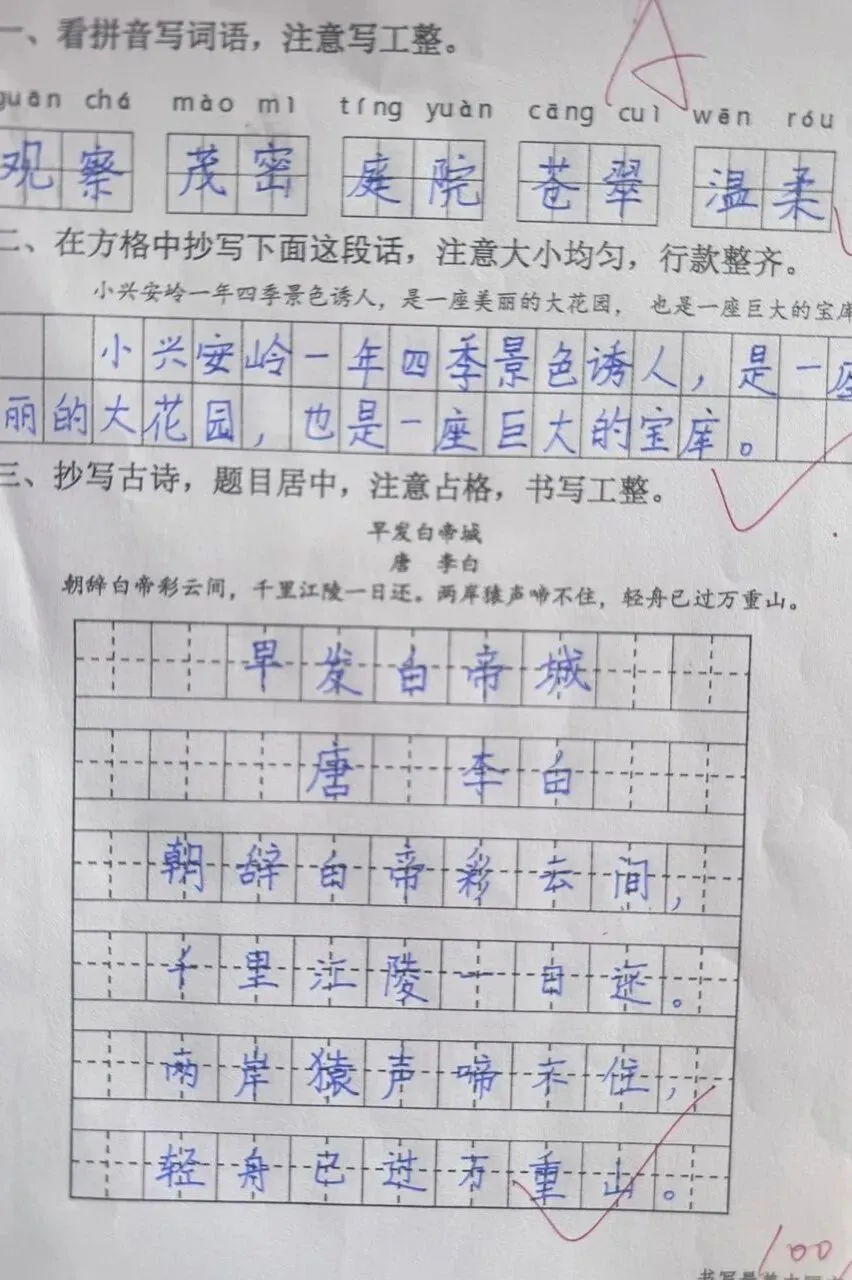 一、看拼音写词语，注意写工整。
A
guān chá mào mì tíng yuàn cāng cuì wēn róu
观察 茂密 庭院 苍翠 温柔
二、在方格中抄写下面这段话，注意大小均匀，行款整齐。
小兴安岭一年四季景色诱人，是一座美丽的大花园， 也是一座巨大的宝库
小兴安岭一年四季景色诱人，是一座
丽的大花园，也是一座巨大的宝库。
三、抄写古诗，题目居中，注意占格，书写工整。
早发白帝城
唐 李白
朝辞白帝彩云间，千里江陵一日还。两岸猿声啼不住，轻舟已过万重山。
早发白帝城
唐 李白
朝辞白帝彩云间，
千里江陵一日还。
两岸猿声啼不住，
轻舟已过万重山。
100
书写